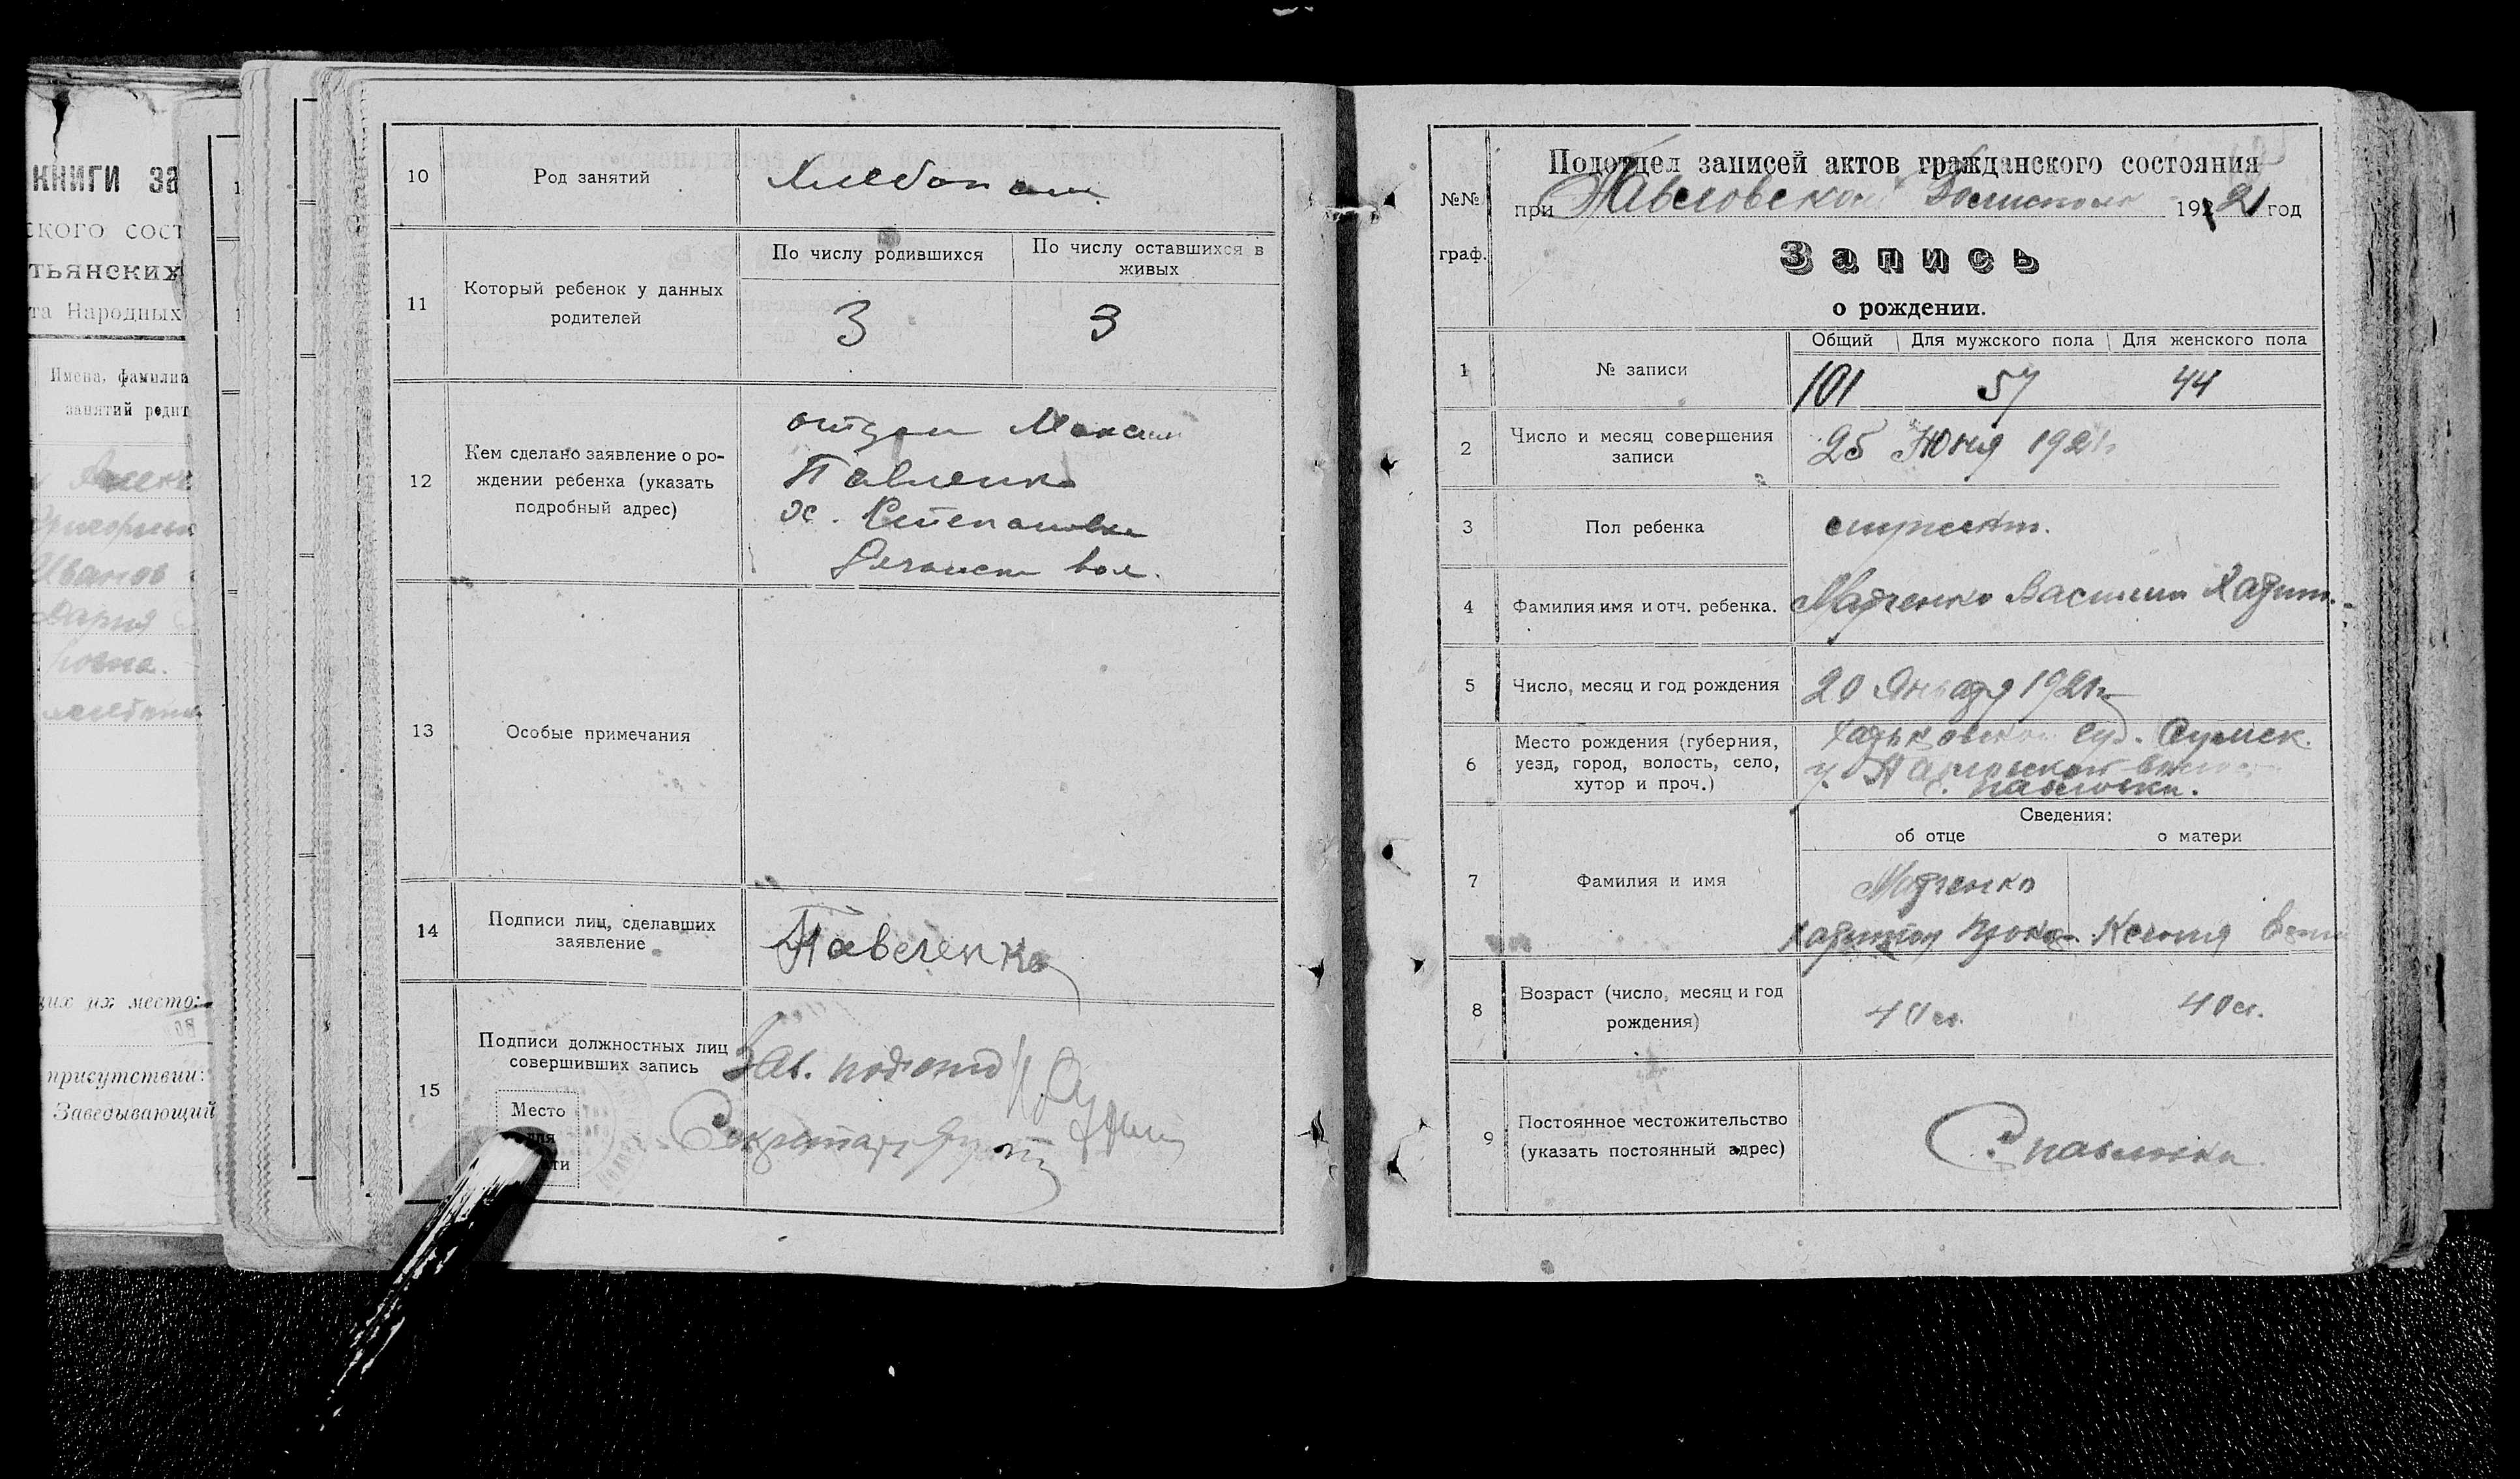 КНИГИ ЗА
ского сост
тьянских
та Народных
Имена, фамилии
занятий родит
Иванов
Дария
щих их место:
присутствии:
Заведывающий
10 Род занятий Хлебопаш.
11 Который ребенок у данных родителей
По числу родившихся
По числу оставшихся в живых
3 3
12 Кем сделано заявление о рождении ребенка (указать подробный адрес)
отцом Максим
Павленко
х. Степановка
вол.
13 Особые примечания
14 Подписи лиц, сделавших заявление
Павленко
15 Подписи должностных лиц совершивших запись
Зав. подотд
Секретарь
Место
для
ти
Подотдел записей актов гражданского состояния
№№ при Павловской Волисполк 1921 год
граф.
Запись
о рождении.
Общий Для мужского пола Для женского пола
1 № записи 101 57 44
2 Число и месяц совершения записи 25 Июня 1921г.
3 Пол ребенка
4 Фамилия имя и отч. ребенка. Марченко Василий Харит.
5 Число, месяц и год рождения 20 Января 1921г.
6 Место рождения (губерния, уезд, город, волость, село, хутор и проч.)
Харьковской губ. Сумск.
у. Павловской
с. Павловки.
Сведения:
об отце о матери
7 Фамилия и имя
Марченко
Харитон Ксения
8 Возраст (число, месяц и год рождения) 40 л.
9 Постоянное местожительство (указать постоянный адрес)
С. Павловка.